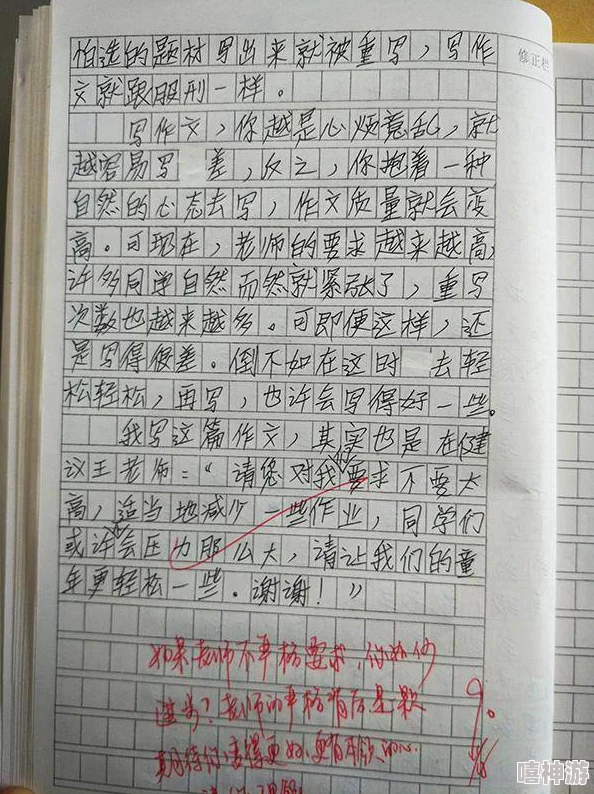 怕选的题材写出来就被重写，写作
文就跟服刑一样。
写作文，你越是心烦意乱，就
越容易写 差，反之，你抱着一种
自然的心态去写，作文质量就会变
高。可现在，老师的要求越来越高，
许多同学自然而然就紧张了，重写
次数也越来越多。可即便这样，还
是写得很差。倒不如在这时 去轻
松轻松，再写，也许会写得好一些。
我写这篇作文，其实也是在健
议王老师：“请您对我要求不要太
高，适当地减少一些作业，同学们
或许会压力那么大，请让我们的童
年更轻松一些．谢谢！”
如果老师不严格要求，你如何
进步？老师的严格背后是
期待你变得更好，更有本领的心．
修正栏
嘻神游